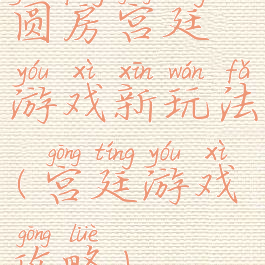 圆房宫廷
yóu xì xīn wán fǎ
游戏新玩法
gōng tíng yóu xì
(宫廷游戏
gōng lüè
攻略)